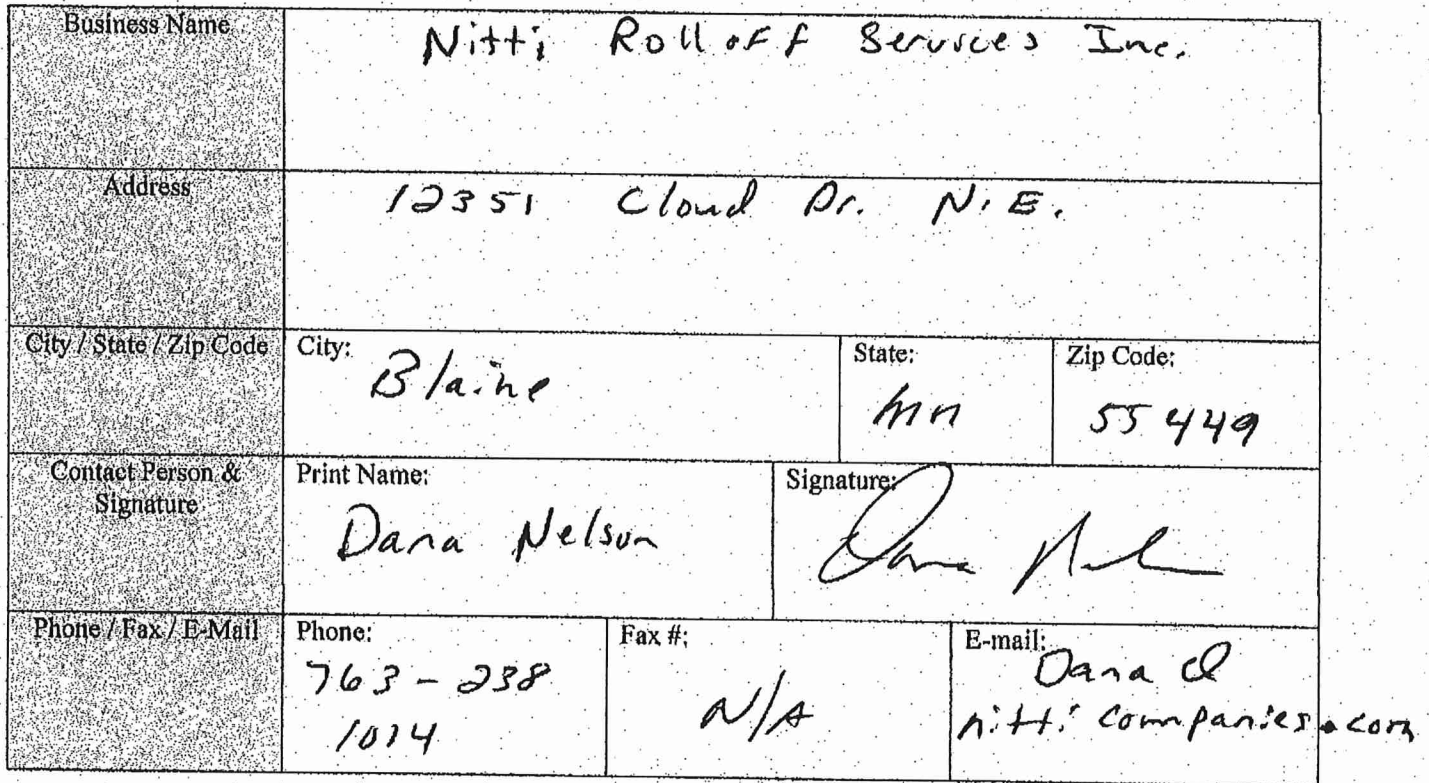 Business Name
Nitti Roll off Services Inc.
Address
12351 Cloud Dr. N.E.
City / State / Zip Code
City:
Blaine
State:
mn
Zip Code:
55449
Contact Person &
Signature
Print Name:
Dana Nelson
Signature:
Dana Nel
Phone / Fax / E-Mail
Phone:
763-238
1014
Fax #:
N/A
E-mail:
Dana @
nitti companies.com